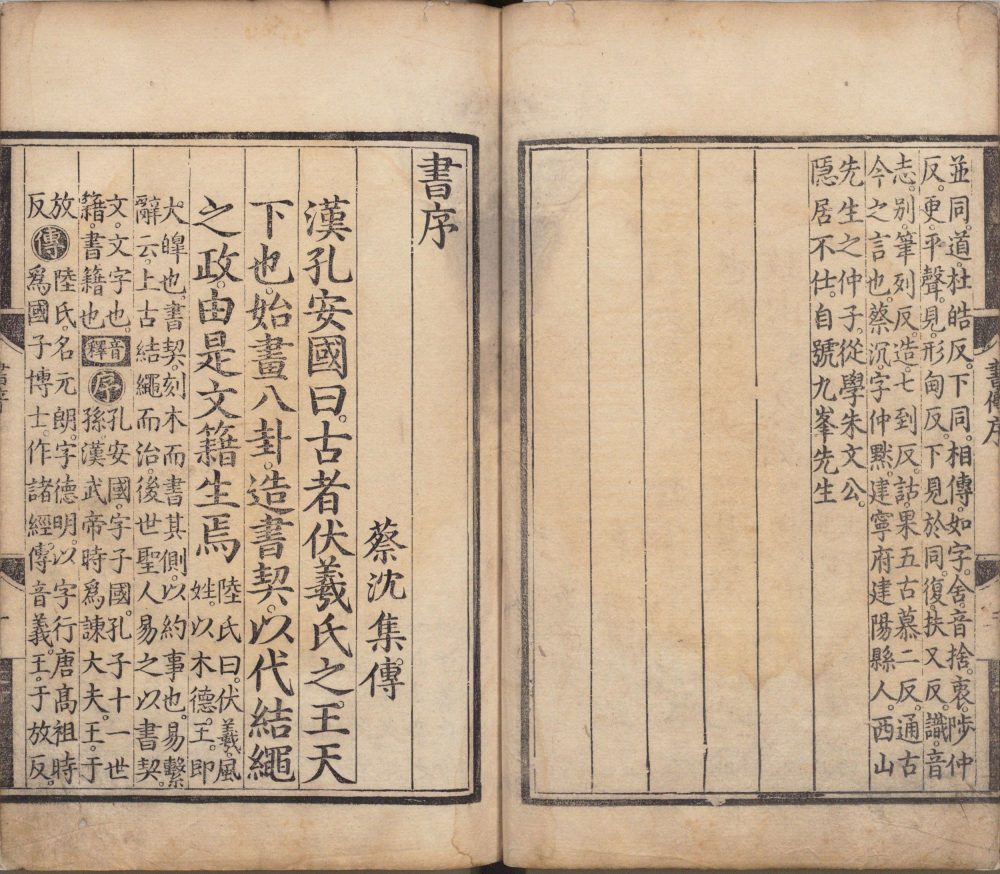 書傳序
並同。道。杜皓反。下同。相傳。如字。舍。音捨。衷。陟仲
反。更。平聲。見。形甸反。下見於同。復。扶又反。識。音
志。別。筆列反。造。七到反。詁。果五古慕二反。通古
今之言也。蔡沉。字仲黙。建寧府建陽縣人。西山
先生之仲子。從學朱文公。
隱居不仕。自號九峯先生
書序
蔡沈集傳
漢孔安國曰。古者伏羲氏之王天
下也。始畫八卦。造書契。以代結繩
之政。由是文籍生焉
陸氏曰。伏羲。風
姓。以木德王。即
大皥也。書契。刻木而書其側。以約事也。易繫
辭云。上古結繩而治。後世聖人易之以書契。
文。文字也。
籍。書籍也。
音釋
序
孔安國。字子國。孔子十一世
孫。漢武帝時爲諫大夫。王。于
放
反
傳
陸氏。名元朗。字德明。以字行。唐高祖時
爲國子博士。作諸經傳音義。王。于放反。